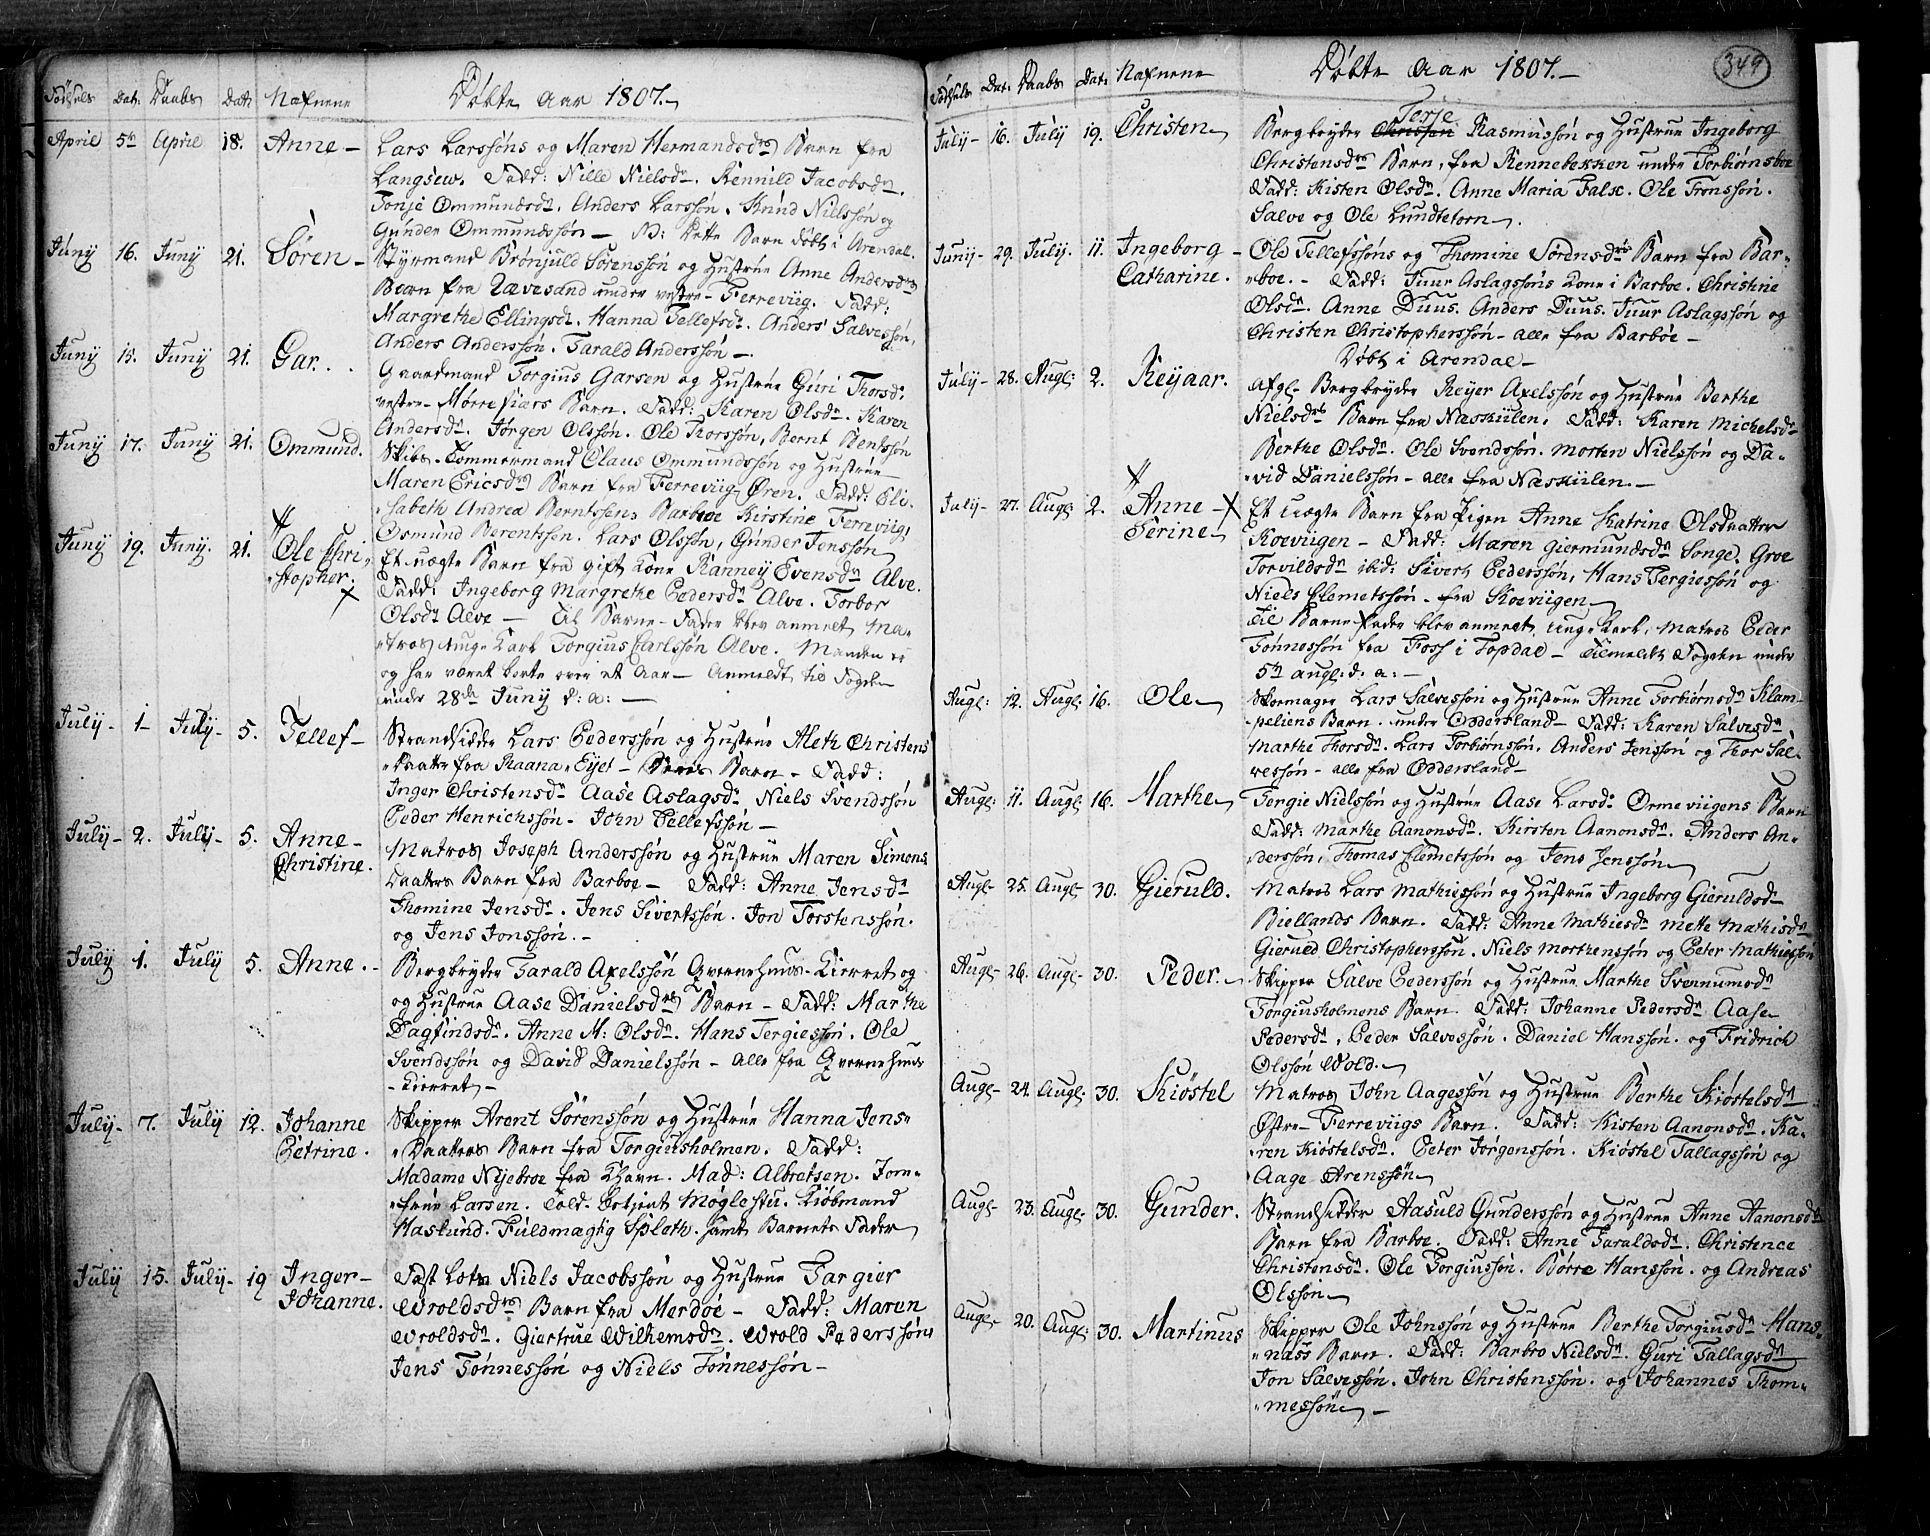 Fødsels Dat: Daabs Dat: Nafnene Døbte Aar 1807.
April 5te April 18. Anne
Lars Larssöns og Maren Hermandsdrs Barn fra
Langsew. Fadd: Nille Nielsdr. Rennild Jacobsdr.
Tonje Ommundsdr. Anders Larssön. Knud Nielssön og
Gunder Ommundssön — NB: Dette Barn döbt i Arendal.
Juny 16. Juny 21. Sören
Styrmand Brönjuld Sörenssön og Hustrue Anne Andersdrs
Barn fra Rævesand under vestre Ferreviig. Fadd:
Margrethe Ellingsd. Hanna Tellefsdr. Anders Salvessön,
Anders Anderssön. Tarald Anderssön —
Juny 15. Juny 21. Gar.
Gaardmand Torgius Garsen og Hustrue Guri Thorsdr
vestre Mørrefiærs Barn. Fadd: Karen Olsdr. Karen
Andersdr. Jörgen Olssön. Ole Thorssön, Bernt Bentssön
Juny 17. Juny 21. Ommund.
Skibs-Tømmermand Claus Ommundssön og Hustrue
Maren Ericsdrs Barn fra Ferreviig Øren. Fadd: Eli-
sabeth Andrea Berntssens Barboe Kirstine Ferreviig,
Osmund Berentssen. Lars Olssön, Gunder Jenssön
Juny 19. Juny. 21. Ole Chri-
stopher.
Et uægte Barn fra gift Kone Ranney Evensdr Alve.
Fadd: Ingeborg Margrethe Pedersdr Alve. Torbor
Olsdr Alve — Til Barne-Fader blev anmelt Ma-
tros ung Karl Torgius Carlssön Alve. Manden er
og har været borte over et Aar — Anmeldt til Fogden
under 28de Juny d: a: —
July 1 July 5. Tellef
Strandsidder Lars Pederssön og Hustrue Aleth Christens
Daatter fra Raana-Eyet — Barn — Fadd:
Inger Christensdr Aase Aslagsdr, Niels Svendssön
Peder Henrichssön. John Tellefssön —
July 2. July 5. Anne
Christine.
Matros Joseph Anderssön og Hustrue Maren Simons
Daatters Barn fra Barboe — Fadd: Anne Jensdr
Thomine Jensdr. Jens Sivertssön. Jon Torstenssön.
og Jens Jonssön.
July 1. July 5. Anne.
Bergbryder Tarald Axelssön Qvernehuus-Kierret og
og Hustrue Aase Danielsdrs Barn — Fadd: Marthe
Dagfindsdr. Anne M: Olsdr. Hans Tergiessön. Ole
Svendssön og David Danielssön — alle fra Qvernehuus
Kierret
July 7. July 12. Johanne
Petrine.
Skipper Arent Sörenssön og Hustrue Hanna Jens
Daatters Barn fra Torgiusholmen. Fadd:
Madame Nyeboe fra Khavn. Mad: Albretsen. Jom-
frue Larsen. Told-Betjent Møglestu. Kiöbmand
Haslund. Fuldmægtig Spleth. samt Barnets Fader
July 15. July 19 Inger
Johanne.
Fast Lots Niels Jacobssön og Hustrue Targier
Wroldsdrs Barn fra Merdöe — Fadd: Maren
Wroldsdr. Giertrue Wilhemsdr. Wrold Pederssön
Jens Tönnessön og Niels Tönnessön —
349
Fødsels Dat: Daabs Dat: Nafnene Døbte Aar 1807.
July 16. July 19. Christen
Terje
Bergbryder Christen Rasmussön og Hustrue Ingeborg
Christensdrs Barn, fra Rennebekken under Torbiörnsboe
Fadd: Kisten Olsdr. Anne Maria Falsc. Ole Tronssön.
Salve og Ole Lundtetorn
Juny 29. July. 11. Ingeborg
Catharine.
Ole Tellefssöns og Thomine Sörensdrs Barn fra Bar-
boe. — Fadd: Juur Aslagssöns Kone i Barboe. Christine
Olsdr. Anne Duus. Anders Duus. Juur Aslagssön og
Christen Christopherssön — alle fra Barböe —
Döbt i Arendal —
July 28. Augl: 2. Reijaar.
Afgl. Bergbryder Reyer Axelssön og Hustrue Berthe
Nielsdrs Barn fra Næskiilen. Fadd: Karen Michelsdr
Berthe Olsdr. Ole Svendssön. Morten Nielssön og Da-
vid Danielssön — alle fra Næskiilen. —
July 27. Augl: 2. Anne
Terine
Et uægte Barn fra Pigen Anne Katrine Olsdaatter
Koeviigen — Fadd: Maren Giermundsdr Songe. Groe
Torvildsdr ibid: Sivert Pederssön, Hans Tergiessön og
Niels Clemetssön — fra Koeviigen
Til Barnefader blev anmelt, ung-Karl, Matros Peder
Tönnessön fra Foss i Topdal — Tilmeldt Fogden under
5te Augl: d. a: —
Augl: 12. Augl: 16. Ole
Skomager Lars Salvessön og Hustrue Anne Torbiörnsdr Klam-
peliens Barn. under Oddersland — Fadd: Karen Salvesdr
Marthe Thorsdr. Lars Torbiörnssön. Anders Jenssön og Thor Sal-
vessön — alle fra Oddersland —
Augl: 11. Augl: 16. Marthe
Tergie Nielssön og Hustrue Aase Larsdr Ormeviigens Barn
Fadd: Marthe Aanonsdr. Kirsten Aanonsdr. Anders An-
derssön, Thomas Clemetssön og Jens Jenssön
Augl. 25. Augl. 30. Gieruld.
Matros Lars Mathiessön og Hustrue Ingeborg Gieruldsd.
Biellands Barn. Fadd: Anne Mathiesdr Mette Mathisdr
Gieruld Christopherssön. Niels Morthenssön og Peter Mathiessön
Augl. 26. Augl. 30. Peder.
Skipper Salve Pederssön og Hustrue Marthe Svennumsdr
Torgiusholmens Barn. Fadd: Johanne Pedersdr Aase
Pedersdr, Peder Salvessön. Daniel Hanssön. og Fridrich
Olssön Wold.
Augl. 24. Augl: 30. Kiöstel
Matros John Aagessön og Hustrue Berthe Kiöstelsdr
Østre-Ferreviigs Barn. Fadd: Kisten Aanonsdr. Ka-
ren Kiöstelsdr. Peter Jörgenssön. Kiöstel Tallagssön og
Aage Arenssön
Augl. 23. Augl: 30. Gunder.
Strandsidder Aasuld Gunderssön og Hustrue Anne Aanonsdr
Barn fra Barboe. Fadd: Anne Taraldsdr. Christence
Christensdr. Ole Torgiussön. Börre Hanssön. og Andreas
Olssön
Augl. 20. Augl: 30. Martinus
Skipper Ole Johnssön og Hustrue Berthe Torgiusdr Hans-
nass Barn. Fadd: Barbro Nielsdr. Guri Tallagsdr
Jon Salvessön. John Christenssön. og Johannes Thom-
messön —